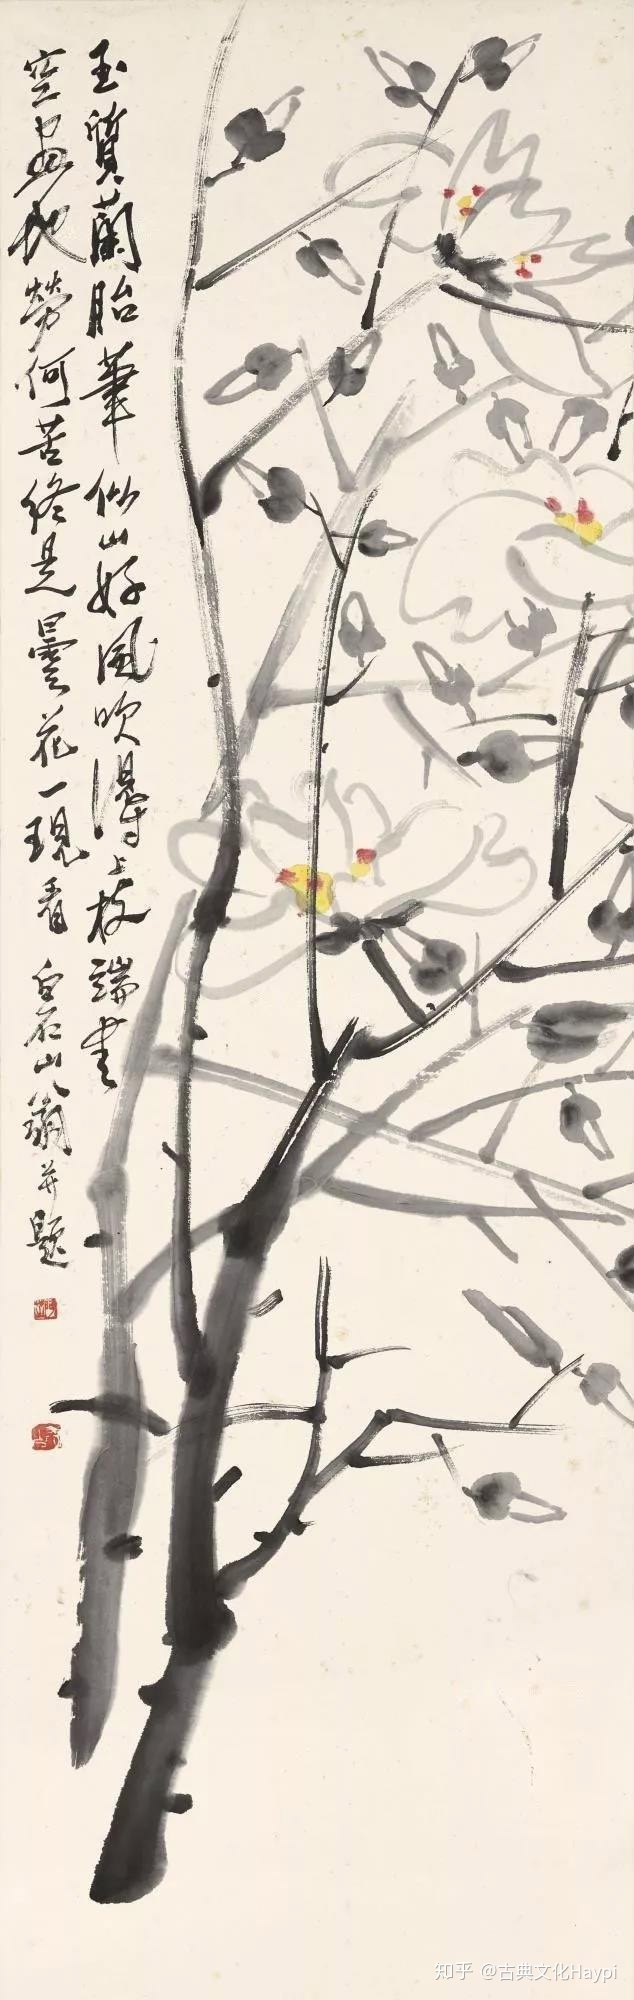 玉質蘭胎筆似山好風吹得上枝端書
空畫地勞何苦終是曇花一現看 白石山翁并題
知乎 @古典文化Haypi